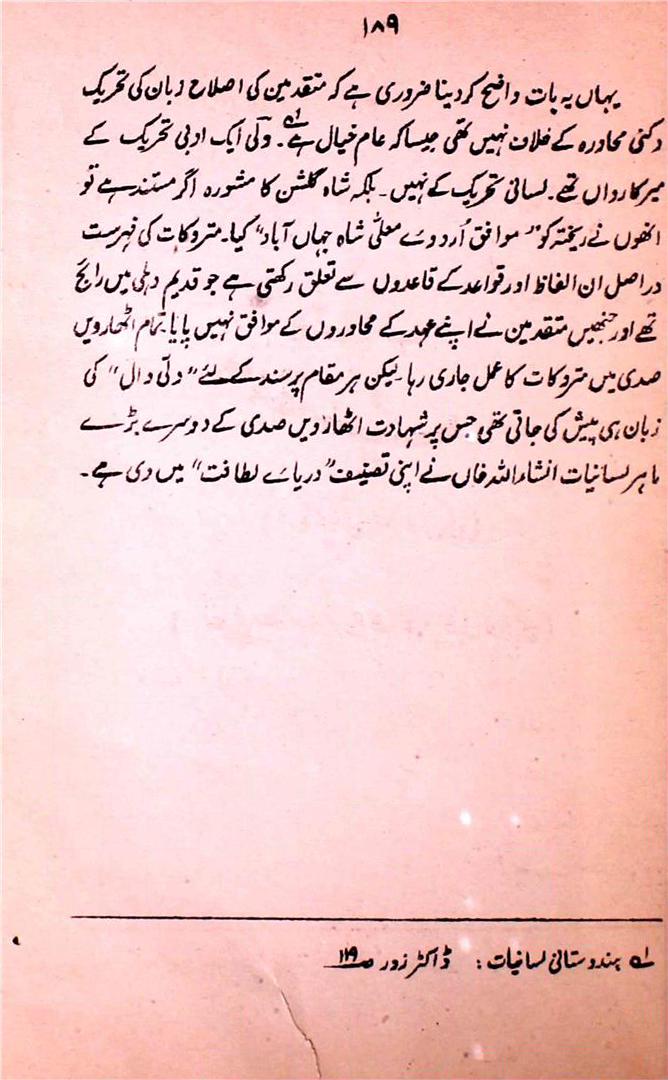 ۱۸۹
یہاں یہ بات واضح کر دینا ضروری ہے کہ متقدمین کی اصلاح زبان کی تحریک
دکنی محاورہ کے خلاف نہیں تھی جیسا کہ عام خیال ہے۱ے۔ ولی ایک ادبی تحریک کے
میر کارواں تھے۔ لسانی تحریک کے نہیں۔ بلکہ شاہ گلشن کا مشورہ اگر مستند ہے تو
انھوں نے ریختہ کو "موافق اُردوے معلیٰ شاہ جہاں آباد" کیا۔ متروکات کی فہرست
در اصل ان الفاظ اور قواعد کے قاعدوں سے تعلق رکھتی ہے جو قدیم دہلی میں رائج
تھے اور جنھیں متقدمین نے اپنے عہد کے محاوروں کے موافق نہیں پایا۔ تمام اٹھارویں
صدی میں متروکات کا عمل جاری رہا۔ لیکن ہر مقام پر سند کے لئے "دلّی وال" کی
زبان ہی پیش کی جاتی تھی جس پر شہادت اٹھارویں صدی کے دوسرے بڑے
ماہر لسانیات انشاء اللہ خاں نے اپنی تصنیف "دریائے لطافت" میں دی ہے۔
۱ے ہندوستانی لسانیات: ڈاکٹر زور صـ۱۱۹